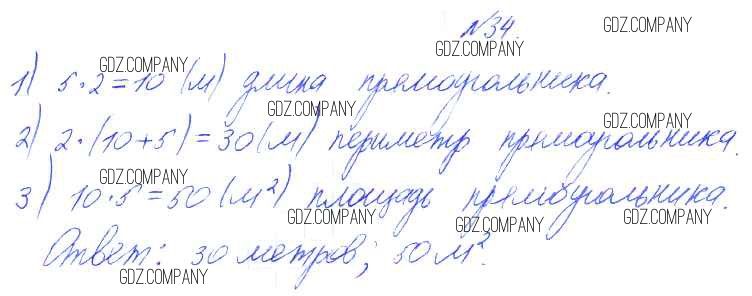 №34.
1) 5·2=10 (м) длина прямоугольника.
2) 2·(10+5)=30(м) периметр прямоугольника.
3) 10·5=50(м²) площадь прямоугольника.
Ответ: 30 метров; 50 м².
GDZ.COMPANY
GDZ.COMPANY
GDZ.COMPANY
GDZ.COMPANY
GDZ.COMPANY
GDZ.COMPANY
GDZ.COMPANY
GDZ.COMPANY
GDZ.COMPANY
GDZ.COMPANY
GDZ.COMPANY
GDZ.COMPANY